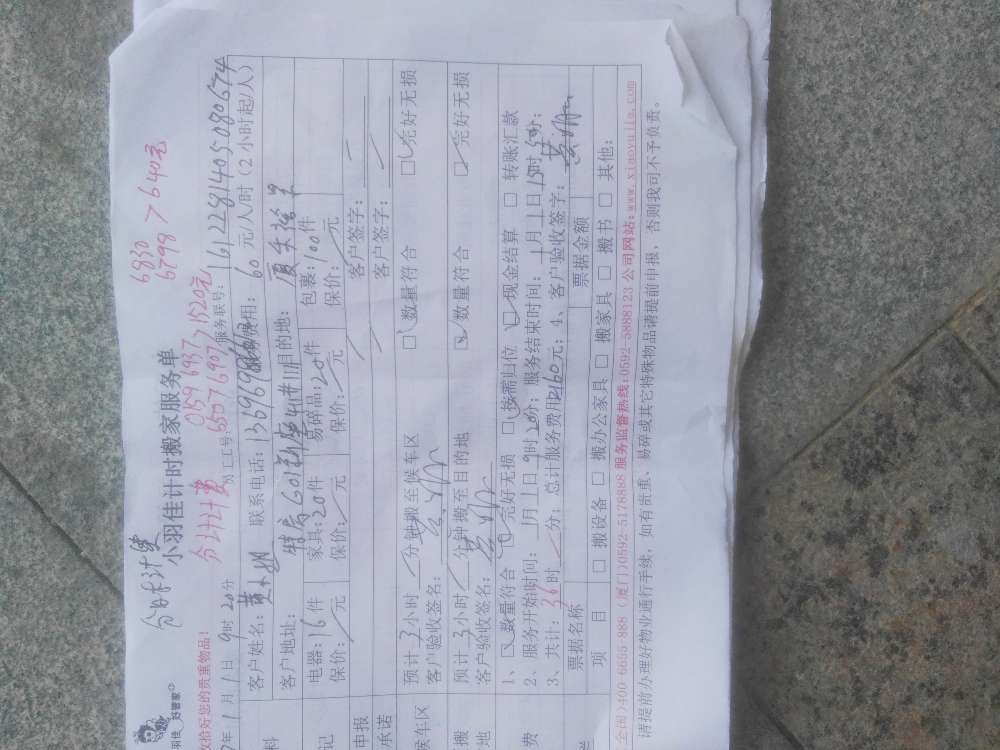 分时计费
6830
6798 > 640元
小羽佳计时搬家服务单
0159 6937
6507 6907 1520元
收拾好您的贵重物品!
分批计费
年1月1日9时20分
员工工号:
服务联号: 1612281405080674
客户姓名:
联系电话:
费用: 60元/人/时(2小时起/人)
客户地址:
目的地:
电器:16件
家具:20件
易碎品:20件
包裹:100件
保价: 元
保价: 元
保价: 元
保价: 元
申报
客户签字:
承诺
客户签字:
预计3小时 分钟搬至候车区
数量符合
完好无损
候车区
客户验收签名:
预计3小时 分钟搬至目的地
数量符合
完好无损
客户验收签名:
1、数量符合 完好无损 按需归位 现金结算 转账汇款
2、服务开始时间: 1月1日9时20分;服务结束时间: 1月1日15时 分;
3、共计:36时 分;总计服务费用2160元;4、客户验收签字:
票据名称
票据金额
项 目
搬设备 搬办公家具 搬家具 搬书 其他:
全国)400 6655 888 (厦门)0592-5178888 服务监督热线:0592-5888123 公司网站:www.xiaoyujia.com
请提前办理好物业通行手续,如有贵重、易碎或其它特殊物品请提前申报,否则我司不予负责。